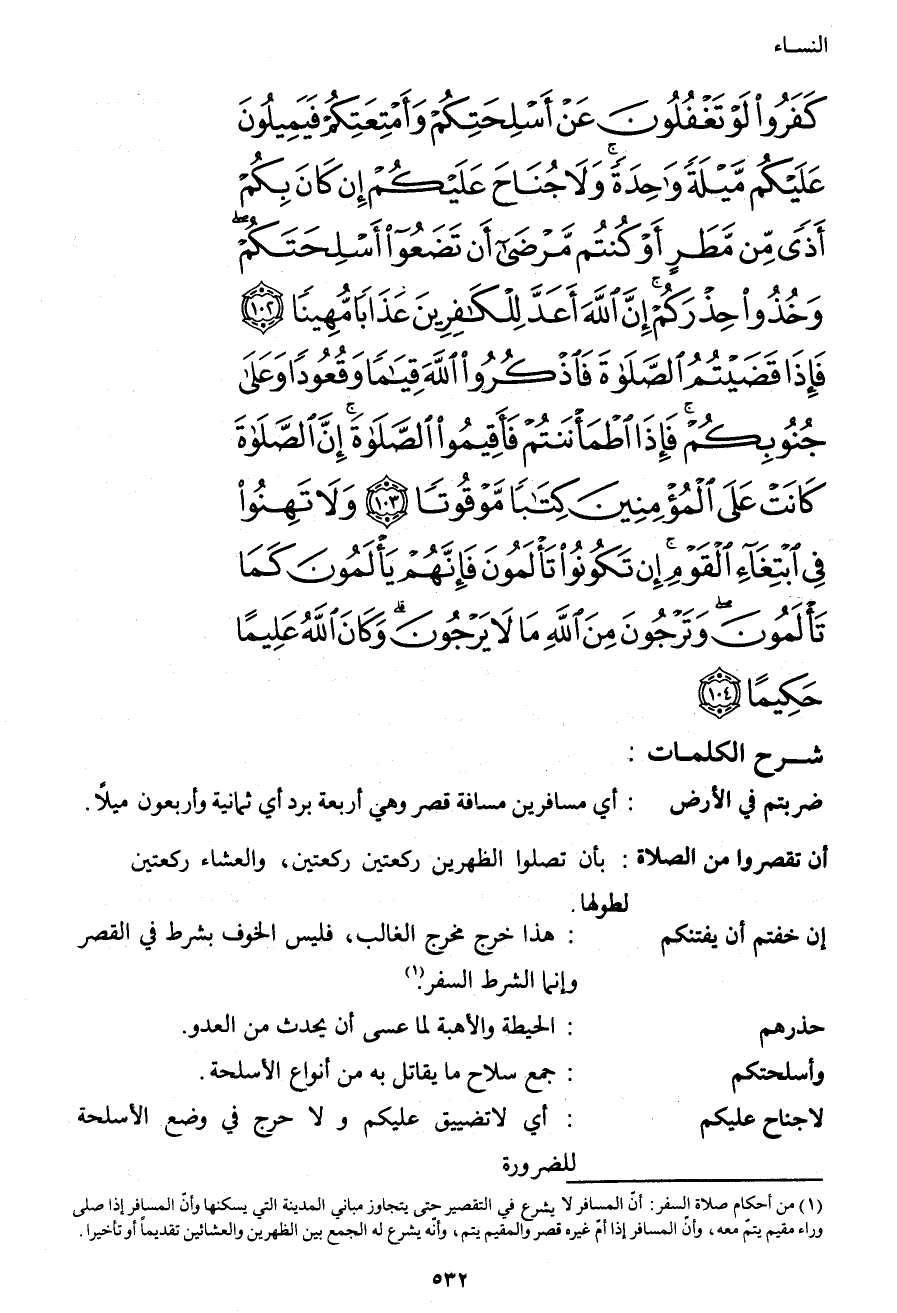 النساء
كَفَرُوا۟ لَوْ تَغْفُلُونَ عَنْ أَسْلِحَتِكُمْ وَأَمْتِعَتِكُمْ فَيَمِيلُونَ
عَلَيْكُم مَّيْلَةً وَٰحِدَةً ۚ وَلَا جُنَاحَ عَلَيْكُمْ إِن كَانَ بِكُمْ
أَذًى مِّن مَّطَرٍ أَوْ كُنتُم مَّرْضَىٰٓ أَن تَضَعُوٓا۟ أَسْلِحَتَكُمْ ۖ
وَخُذُوا۟ حِذْرَكُمْ ۗ إِنَّ ٱللَّهَ أَعَدَّ لِلْكَٰفِرِينَ عَذَابًا مُّهِينًا ١٠٢
فَإِذَا قَضَيْتُمُ ٱلصَّلَوٰةَ فَٱذْكُرُوا۟ ٱللَّهَ قِيَٰمًا وَقُعُودًا وَعَلَىٰ
جُنُوبِكُمْ ۚ فَإِذَا ٱطْمَأْنَنتُمْ فَأَقِيمُوا۟ ٱلصَّلَوٰةَ ۚ إِنَّ ٱلصَّلَوٰةَ
كَانَتْ عَلَى ٱلْمُؤْمِنِينَ كِتَٰبًا مَّوْقُوتًا ١٠٣ وَلَا تَهِنُوا۟
فِى ٱبْتِغَآءِ ٱلْقَوْمِ ۖ إِن تَكُونُوا۟ تَأْلَمُونَ فَإِنَّهُمْ يَأْلَمُونَ كَمَا
تَأْلَمُونَ ۖ وَتَرْجُونَ مِنَ ٱللَّهِ مَا لَا يَرْجُونَ ۗ وَكَانَ ٱللَّهُ عَلِيمًا
حَكِيمًا ١٠٤
شرح الكلمات :
ضربتم في الأرض : أي مسافرين مسافة قصر وهي أربعة برد أي ثمانية وأربعون ميلاً.
أن تقصروا من الصلاة : بأن تصلوا الظهرين ركعتين ركعتين، والعشاء ركعتين
لطولها.
إن خفتم أن يفتنكم : هذا خرج مخرج الغالب، فليس الخوف بشرط في القصر
وإنما الشرط السفر.(١)
حذرهم : الحيطة والأهبة لما عسى أن يحدث من العدو.
وأسلحتكم : جمع سلاح ما يقاتل به من أنواع الأسلحة.
لاجناح عليكم : أي لاتضييق عليكم و لا حرج في وضع الأسلحة
للضرورة
(١) من أحكام صلاة السفر: أنّ المسافر لا يشرع في التقصير حتى يتجاوز مباني المدينة التي يسكنها وأنّ المسافر إذا صلى
وراء مقيم يتمّ معه، وأنّ المسافر إذا أمّ غيره قصر والمقيم يتم، وأنّه يشرع له الجمع بين الظهرين والعشائين تقديماً أو تأخيرا.
٥٣٢